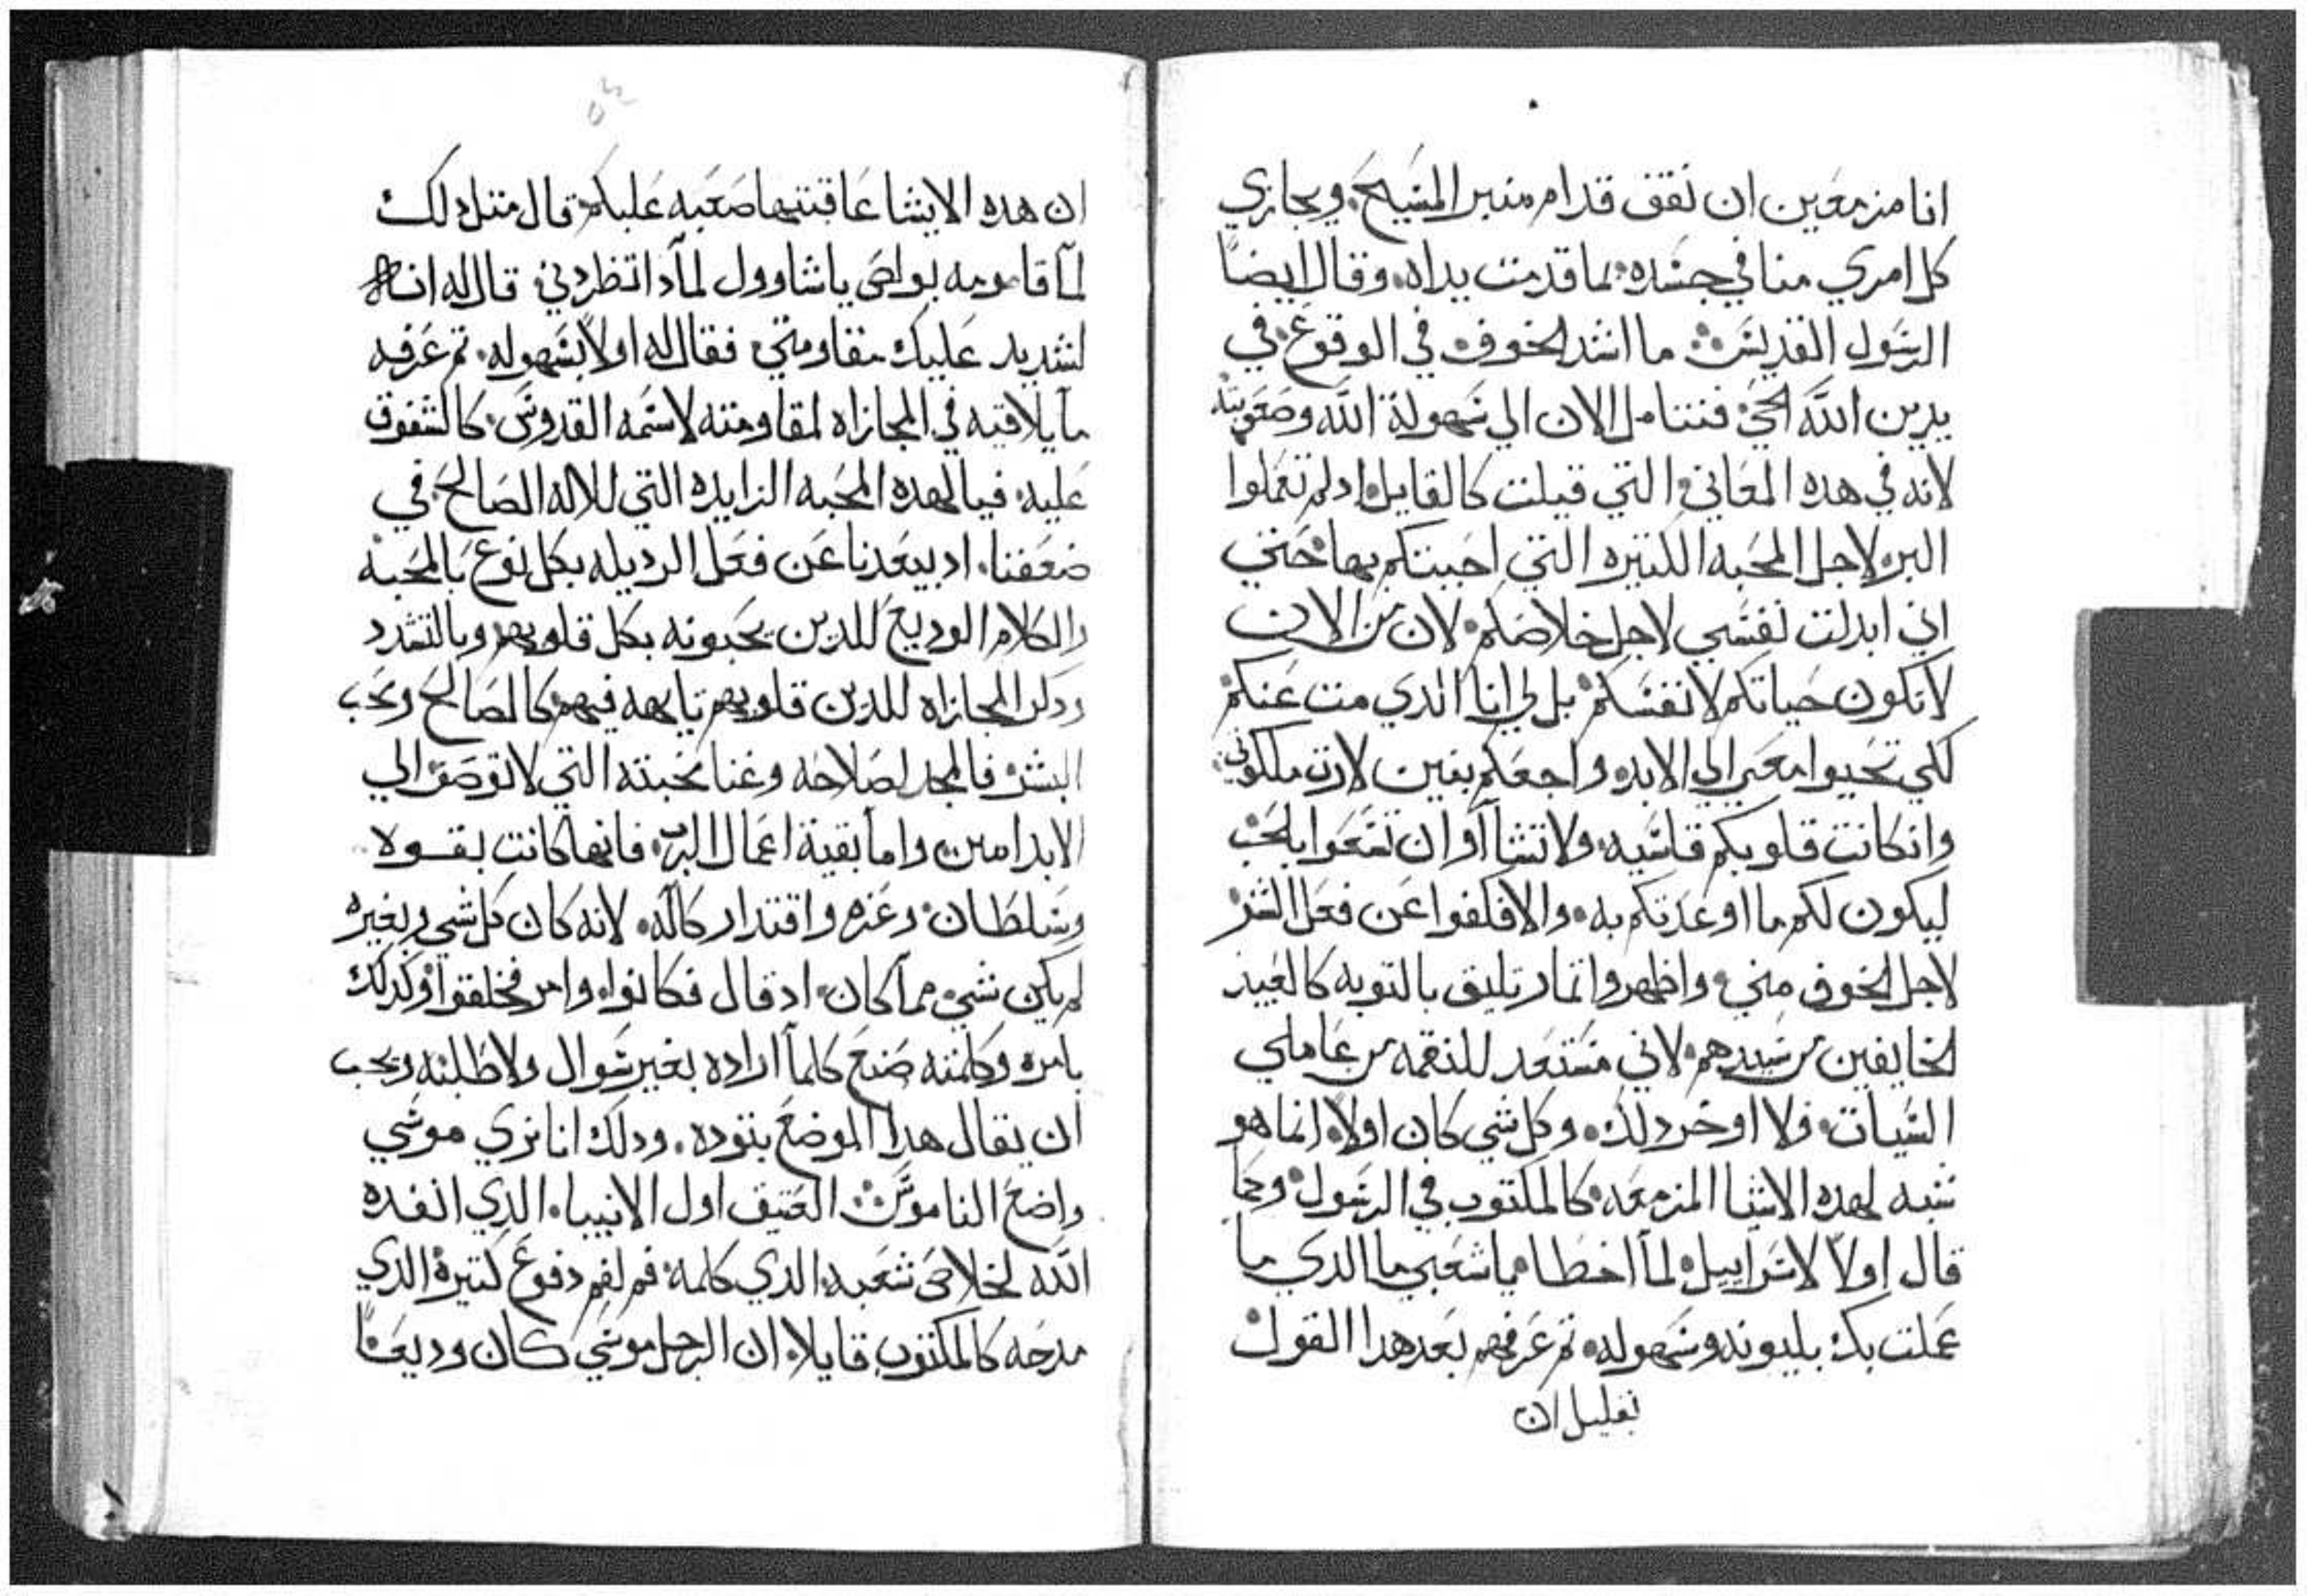 انا مزمعين ان نقف قدام منبر المسيح، ويجازي
كل امري منا في جسده، بما قدمت يداه. وقال ايضاً
الرسول القديس ما اشد الخوف في الوقوع، في
يدين الله الحي فنتامل الان الي سهولة الله وصعوبته
لانه في هده المعاني التي قيلت كالقايل ادلم تعملوا
البر، لاجل المحبه الكتيره التي احببتكم بها حتي
اني ابدلت نفسي لاجل خلاصكم. لان من الان
لا تكون حياتكم لانفسكم بل لي انا الدي مت عنكم
لكي تحيوا معي الي الابد، واجعلكم بنين لارت ملكوتي
وان كانت قلوبكم قاسيه، ولا تشاآوا ان تسمعوا بالحب
ليكون لكم ما اوعدتكم به. والا فكفوا عن فعل الشر
لاجل الخوف مني، واظهروا اتمار تليق بالتوبه كالعبيد
الخايفين من سيدهم، لاني مستعد للنقمه من عاملي
السيات، فلا اوخر دلك. وكل شي كان اولاً، انما هو
شبه لهده الاشيا المزمعه، كالمكتوب في الرسول، وكما
قال اولاً لاسراييل، لمآ اخطا، يا شعبي ما الدي ما
عملت بك بليونه وسهوله، تم عرفهم بعد هدا القول
بقليل ان
٥٤
ان هده الاشيا عاقبتها صعبه عليكم، قال متل دلك
لمآ قاومه بولص ياشاوول لمآدا تطردني قال له انه
لشديد عليك مقاومتي فقال له اولاً بسهوله، تم عرفه
ما يلاقيه في المجازاه لمقاومته لاسمه القدوس، كالشفوق
عليه، فيا لهده المحبه الزايده التي للاله الصالح، في
ضعفنا، اد يبعدنا عن فعل الرديله بكل نوع بالمحبه
والكلام الوديع للدين يحبونه بكل قلوبهم وبالتشدد
ودكر المجازاه للدين قلوبهم تايهه فيهم كالصالح ومحب
البشر، فالمجد لصلاحه وغنا محبته التي لا توصف الي
الابد امين واما بقية اعمال الرب، فانها كانت بقوه
وسلطان، وعزه واقتدار كاله، لانه كان كل شي وبغيره
لم يكن شي مما كان، اد قال فكانوا، وامر فخلقوا، وكدلك
بامره وكلمته صنع كلمآ اراده بغير سوال ولا طلبه ويجب
ان يقال هدا الموضع بتوده. ودلك انا نري موسي
واضع الناموس العتيق اول الانبيا، الدي انفده
الله لخلاص شعبه الدي كلمه فم لفم دفوع كتيرة الدي
مدحه كالمكتوب قايلاً، ان الرجل موسي كان وديعاً